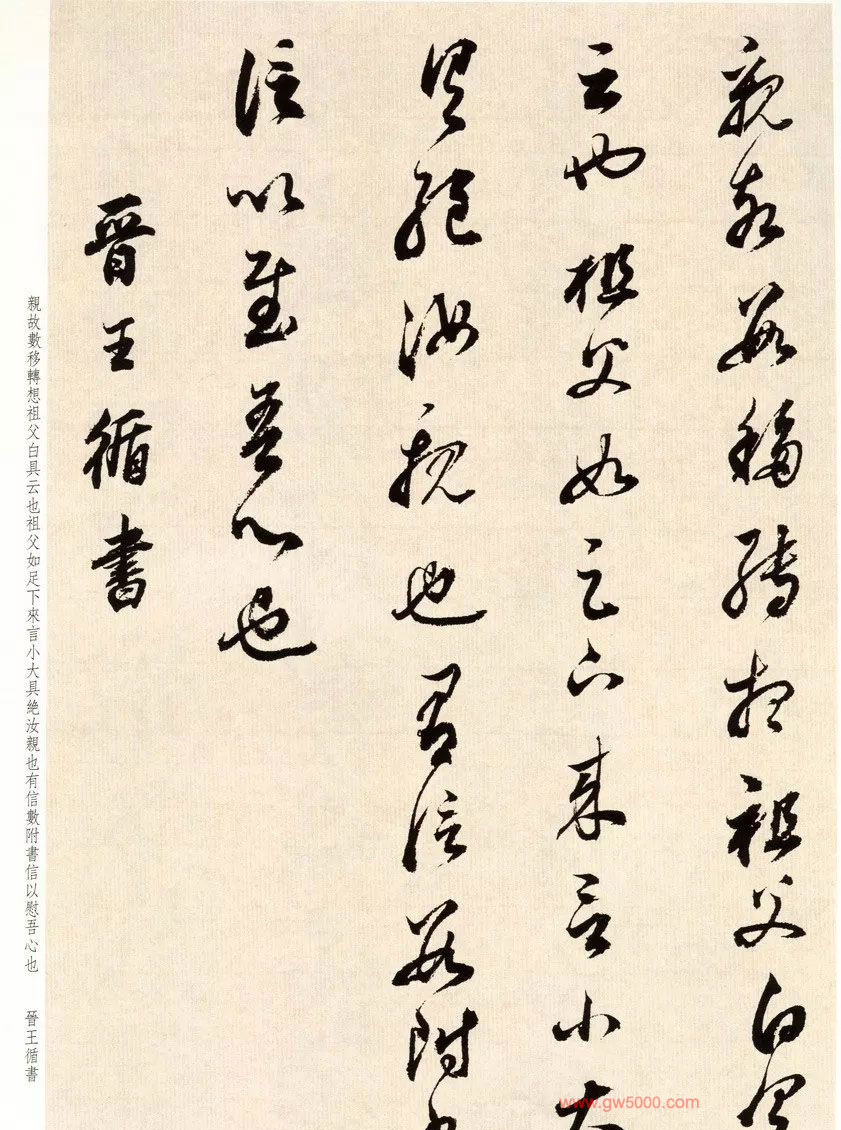 親故數移轉想祖父白具
云也祖父如足下來言小大
具絶汝親也有信數附書
信以慰吾心也
晉王循書
親故數移轉想祖父白具云也祖父如足下來言小大具絶汝親也有信數附書信以慰吾心也 晉王循書
www.gw5000.com